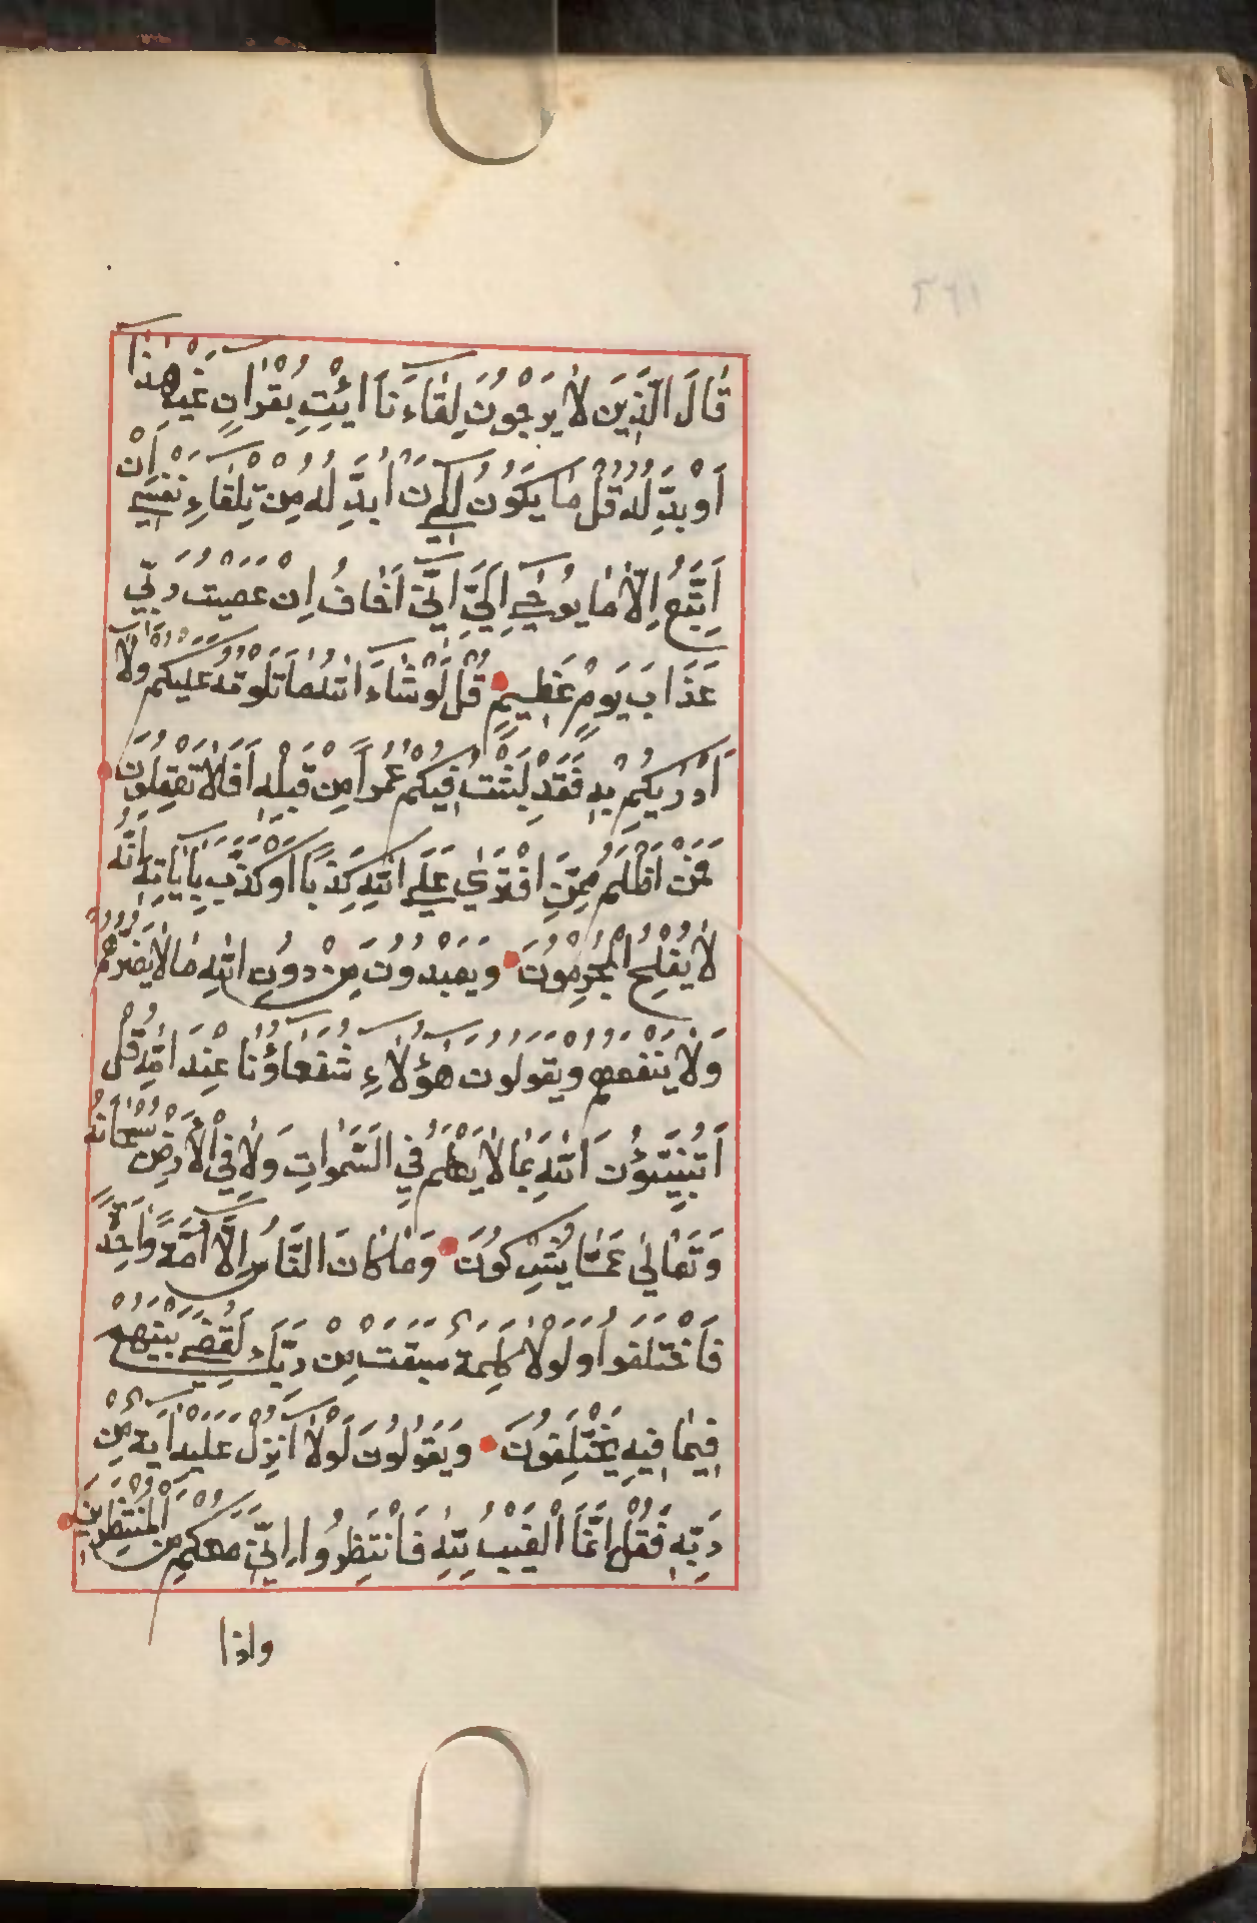 قَالَ الَّذِينَ لَا يَرْجُونَ لِقَاءَنَا ائْتِ بِقُرْاٰنٍ غَيْرِ هٰذَا
اَوْ بَدِّلْهُ قُلْ مَا يَكُونُ لِي اَنْ اُبَدِّلَهُ مِنْ تِلْقَاءِ نَفْسِي اِنْ
اَتَّبِعُ اِلَّا مَا يُوحٰى اِلَيَّ اِنِّي اَخَافُ اِنْ عَصَيْتُ رَبِّي
عَذَابَ يَوْمٍ عَظِيمٍ قُلْ لَوْ شَاءَ اللهُ مَا تَلَوْتُهُ عَلَيْكُمْ وَلَا
اَدْرٰيكُمْ بِهِ فَقَدْ لَبِثْتُ فِيكُمْ عُمُرًا مِنْ قَبْلِهِ اَفَلَا تَعْقِلُونَ
فَمَنْ اَظْلَمُ مِمَّنِ افْتَرٰى عَلَى اللهِ كَذِبًا اَوْ كَذَّبَ بِاٰيَاتِهِ اِنَّهُ
لَا يُفْلِحُ الْمُجْرِمُونَ وَيَعْبُدُونَ مِنْ دُونِ اللهِ مَا لَا يَضُرُّهُمْ
وَلَا يَنْفَعُهُمْ وَيَقُولُونَ هٰؤُلَاءِ شُفَعَاؤُنَا عِنْدَ اللهِ قُلْ
اَتُنَبِّئُونَ اللهَ بِمَا لَا يَعْلَمُ فِي السَّمٰوَاتِ وَلَا فِي الْاَرْضِ سُبْحَانَهُ
وَتَعَالٰى عَمَّا يُشْرِكُونَ وَمَا كَانَ النَّاسُ اِلَّا اُمَّةً وَاحِدَةً
فَاخْتَلَفُوا وَلَوْلَا كَلِمَةٌ سَبَقَتْ مِنْ رَبِّكَ لَقُضِيَ بَيْنَهُمْ
فِيمَا فِيهِ يَخْتَلِفُونَ وَيَقُولُونَ لَوْلَا اُنْزِلَ عَلَيْهِ اٰيَةٌ مِنْ
رَبِّهِ فَقُلْ اِنَّمَا الْغَيْبُ لِلهِ فَانْتَظِرُوا اِنِّي مَعَكُمْ مِنَ الْمُنْتَظِرِينَ
واذا